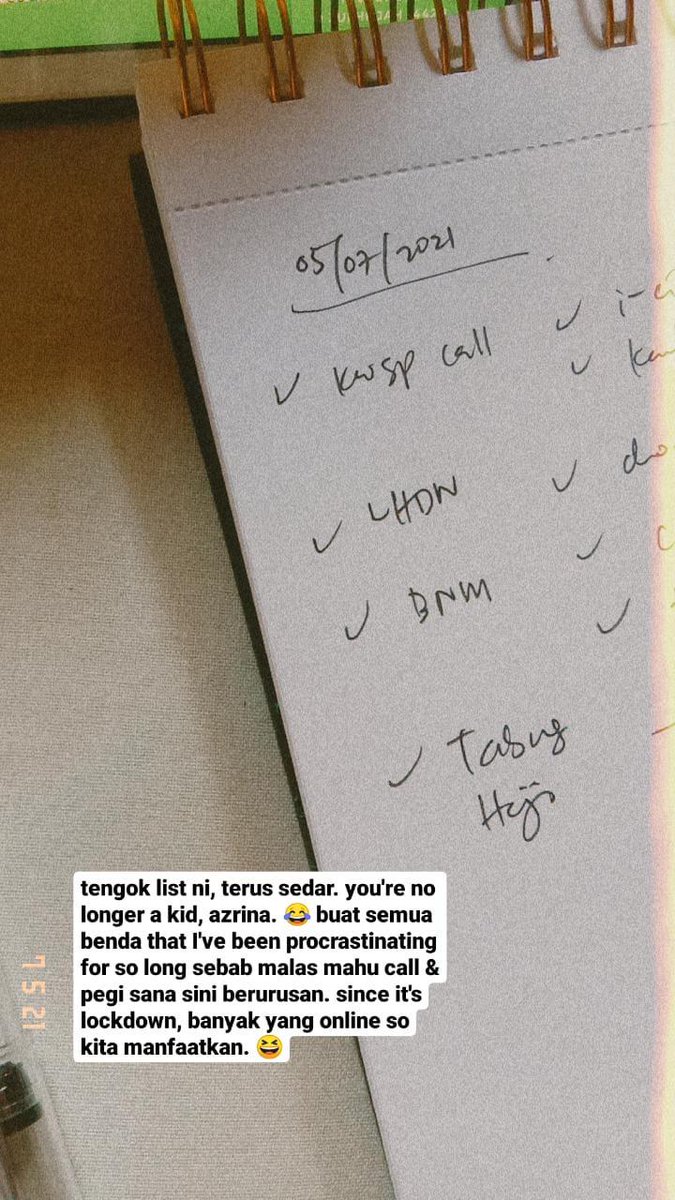 05/07/2021
✓ kwsp call
✓ i-
✓ LHDN
✓ BNM
✓ Tabung
Haji
tengok list ni, terus sedar. you're no
longer a kid, azrina. 😂 buat semua
benda that I've been procrastinating
for so long sebab malas mahu call &
pegi sana sini berurusan. since it's
lockdown, banyak yang online so
kita manfaatkan. 😆
7 5 21